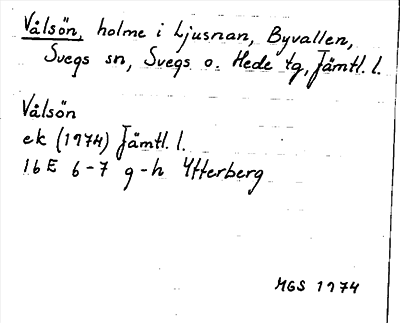 Vålsön, holme i Ljusnan, Byvallen,
Svegs sn, Svegs o. Hede tg, Jämtl. l.
Vålsön
ek (1974) Jämtl. l.
16 E 6-7 g-h Ytterberg
MGS 1974